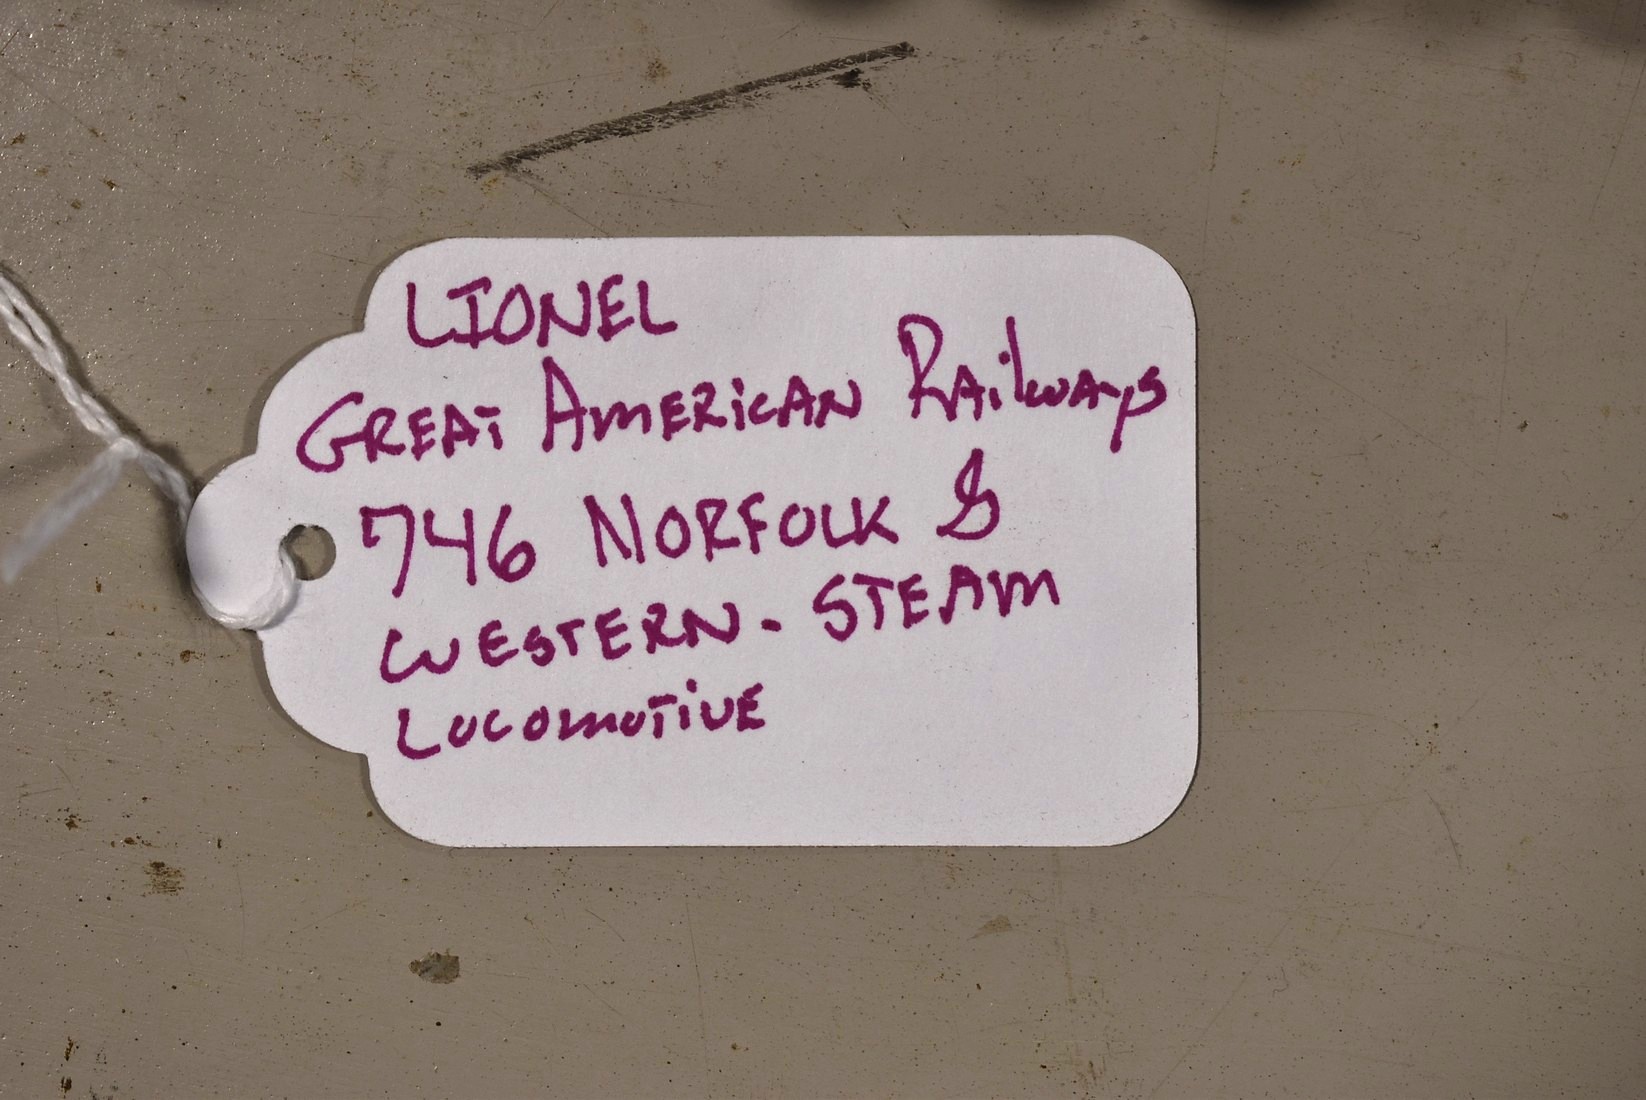 LIONEL
GREAT AMERICAN Railways
746 NORFOLK &
WESTERN - STEAM
LOCOMOTIVE